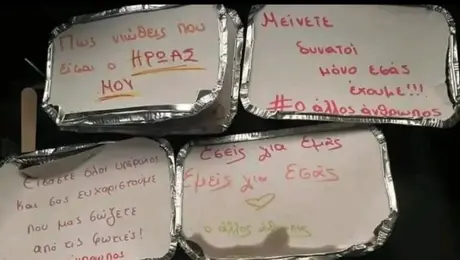 Πως νιώθεις που
είσαι ο ΗΡΩΑΣ
ΜΟΥ
Μείνετε
δυνατοί
μόνο εσάς
έχουμε!!!
#ο άλλος άνθρωπος
Είσαστε όλοι υπέροχοι
και σας ευχαριστούμε
που μας σώζετε
από τις φωτιές!
άνθρωπος
Εσείς για Εμάς
Εμείς για Εσάς
ο άλλος άνθρωπος